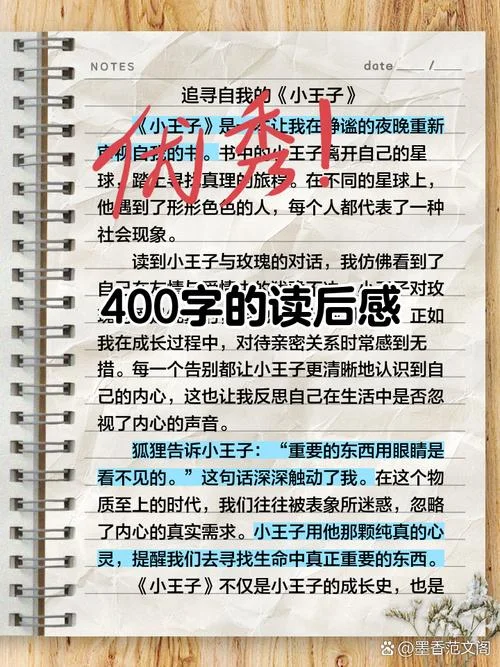 NOTES
date ___ / ___
追寻自我的《小王子》
《小王子》是一本让我在静谧的夜晚重新
审视自我的书。书中的小王子离开自己的星
球，踏上寻找真理的旅程。在不同的星球上，
他遇到了形形色色的人，每个人都代表了一种
社会现象。
优秀！
读到小王子与玫瑰的对话，我仿佛看到了
400字的读后感
正如
我在成长过程中，对待亲密关系时常感到无
措。每一个告别都让小王子更清晰地认识到自
己的内心，这也让我反思自己在生活中是否忽
视了内心的声音。
狐狸告诉小王子：“重要的东西用眼睛是
看不见的。”这句话深深触动了我。在这个物
质至上的时代，我们往往被表象所迷惑，忽略
了内心的真实需求。小王子用他那颗纯真的心
灵，提醒我们去寻找生命中真正重要的东西。
《小王子》不仅是小王子的成长史，也是
墨香范文阁